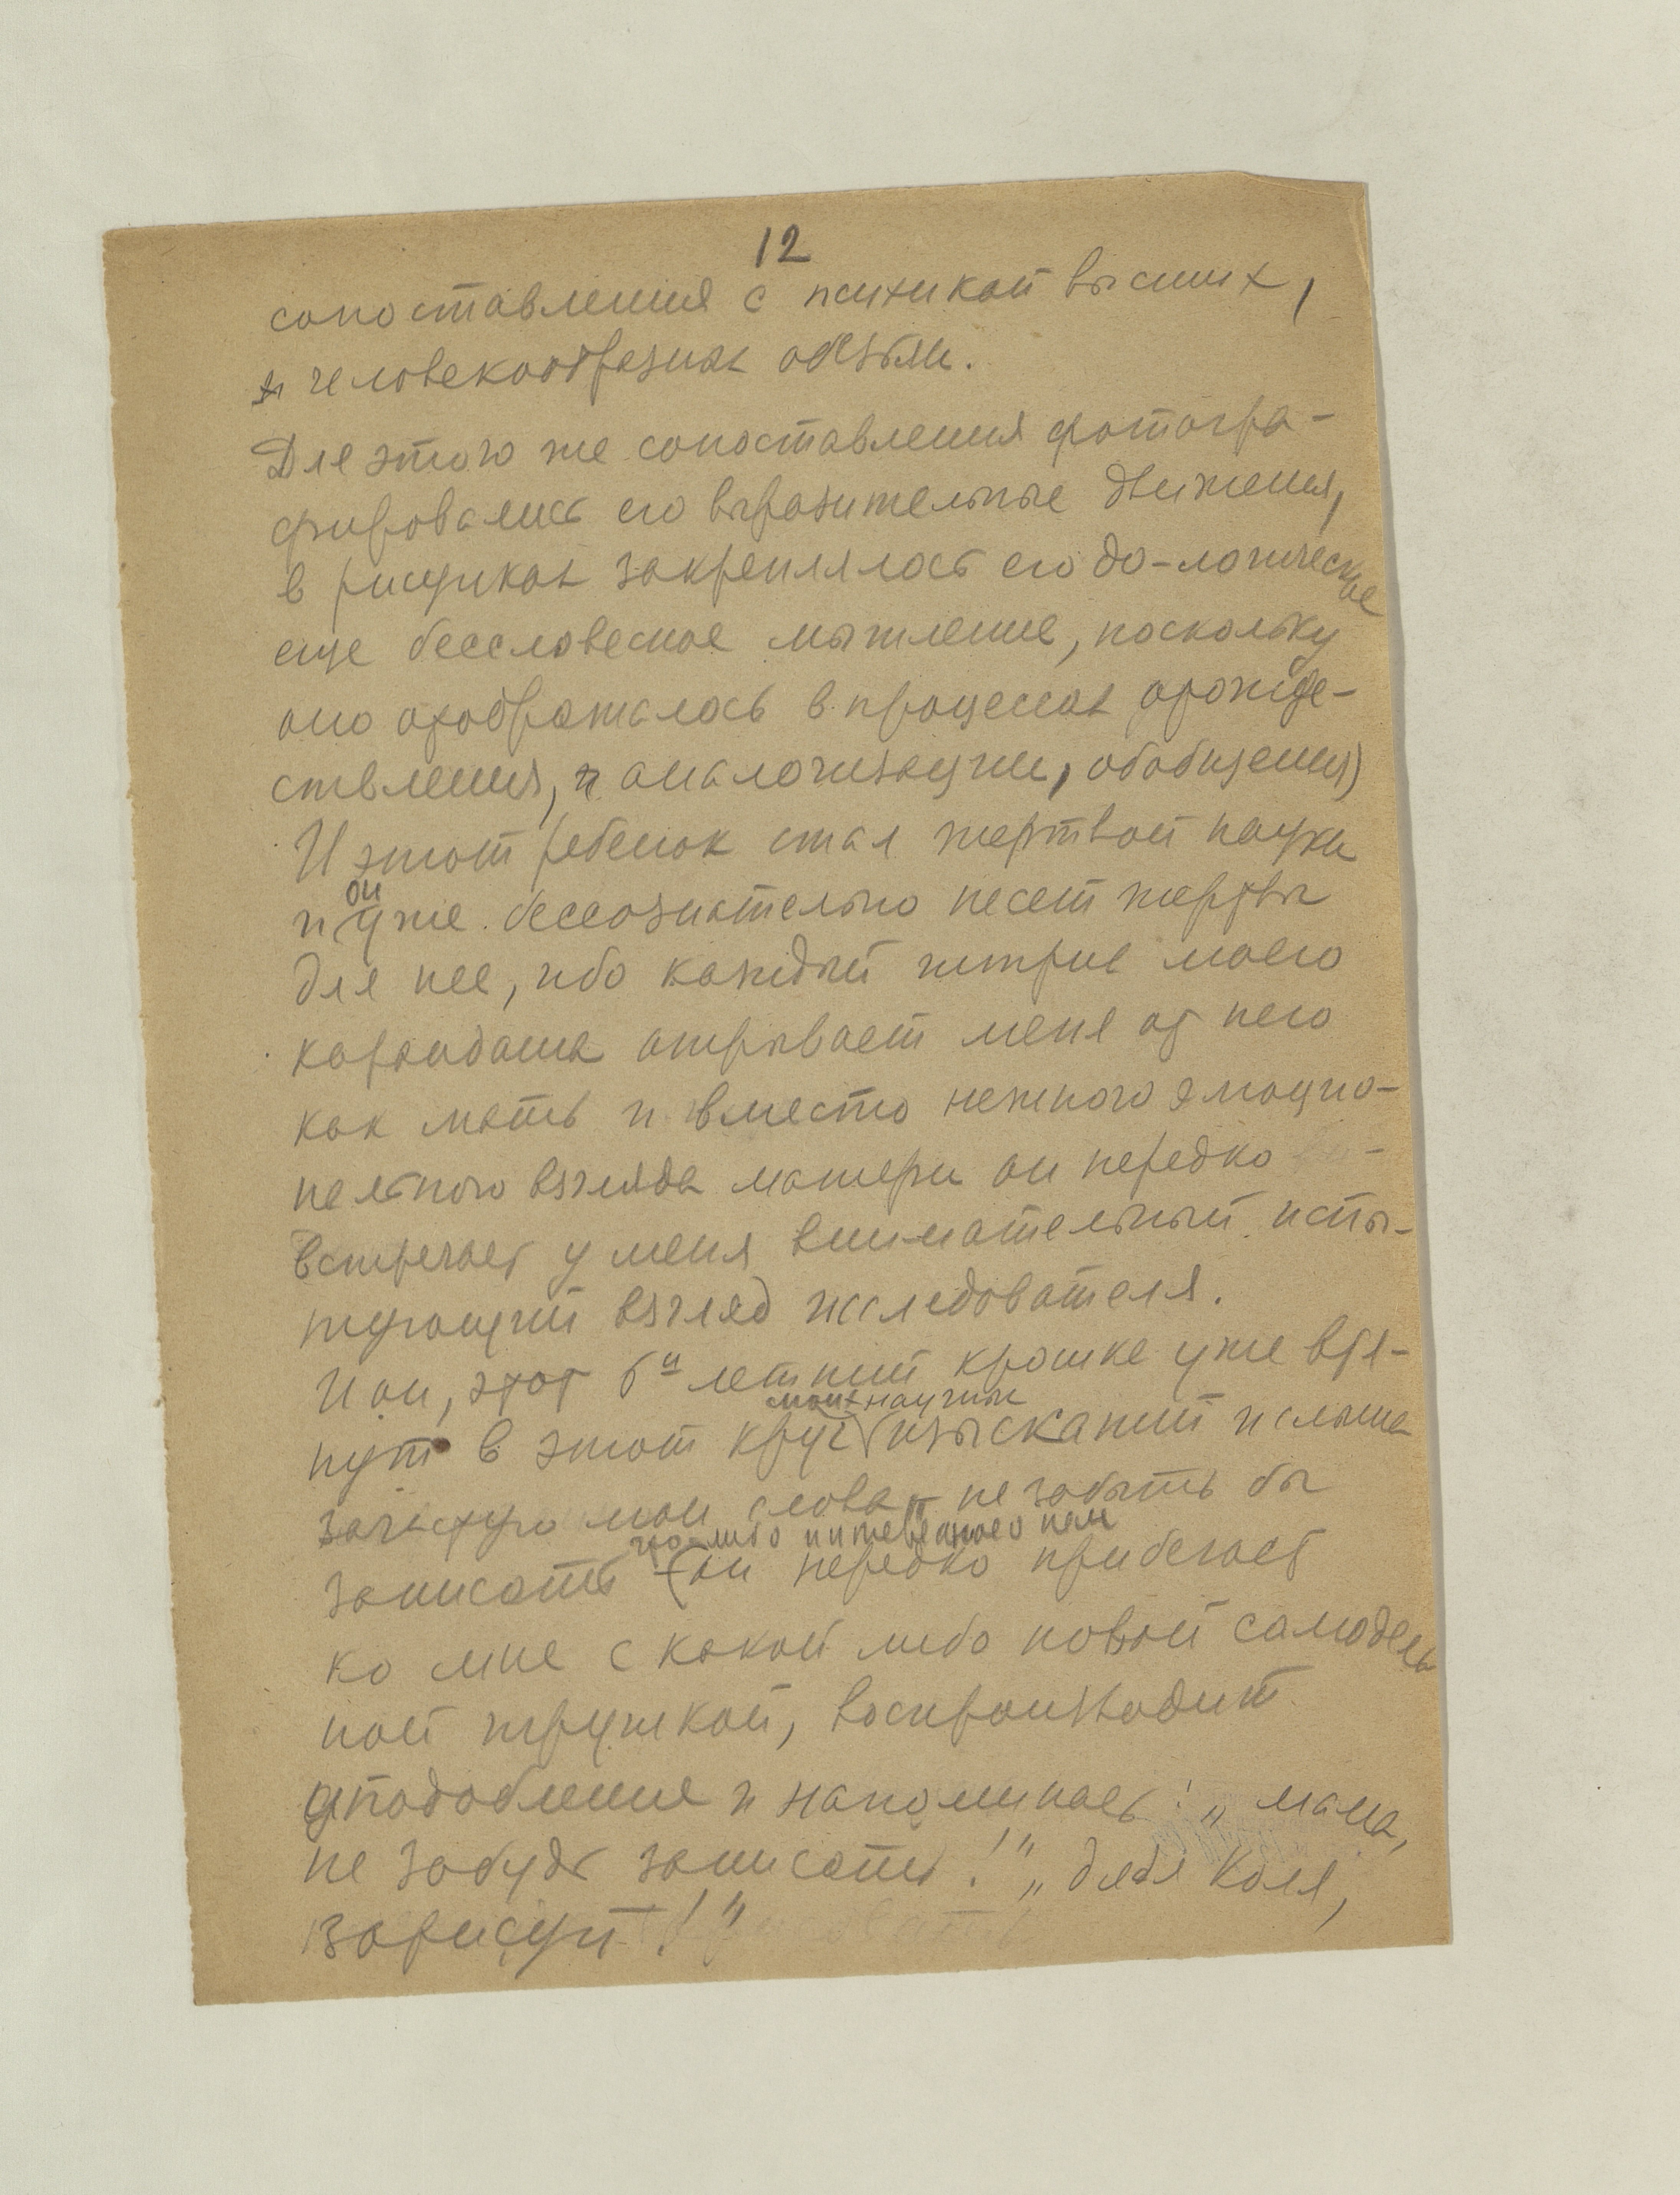 12
сопоставления с психикой высших,
человекообразных обезьян.
Для этого же сопоставления фотогра-
фировались его выразительные движения,
в рисунках закреплялось его до-логическое
еще бессловесное мышление, поскольку
оно отображалось в процессах отожде-
ствления, аналогизации, обобщения)
И этот ребенок стал жертвой науки
и он уже бессознательно несет жертвы
для нее, ибо каждый штрих моего
карандаша отрывает меня от него
как мать и вместо нежного эмоцио-
нального взгляда матери он нередко
встречает у меня внимательный испы-
тующий взгляд исследователя.
И он, этот 6и летний крошка уже втя-
моих научных
нут в этот круг изысканий и слыша
зачастую мои слова - не забыть бы
что-либо интересное нам
записать (он нередко прибегает
ко мне с какой либо новой самодель
ной игрушкой, воспроизводит
уподобления и напоминает: „мама,
не забудь записать!" „дядя Коля,
зарисуй!"